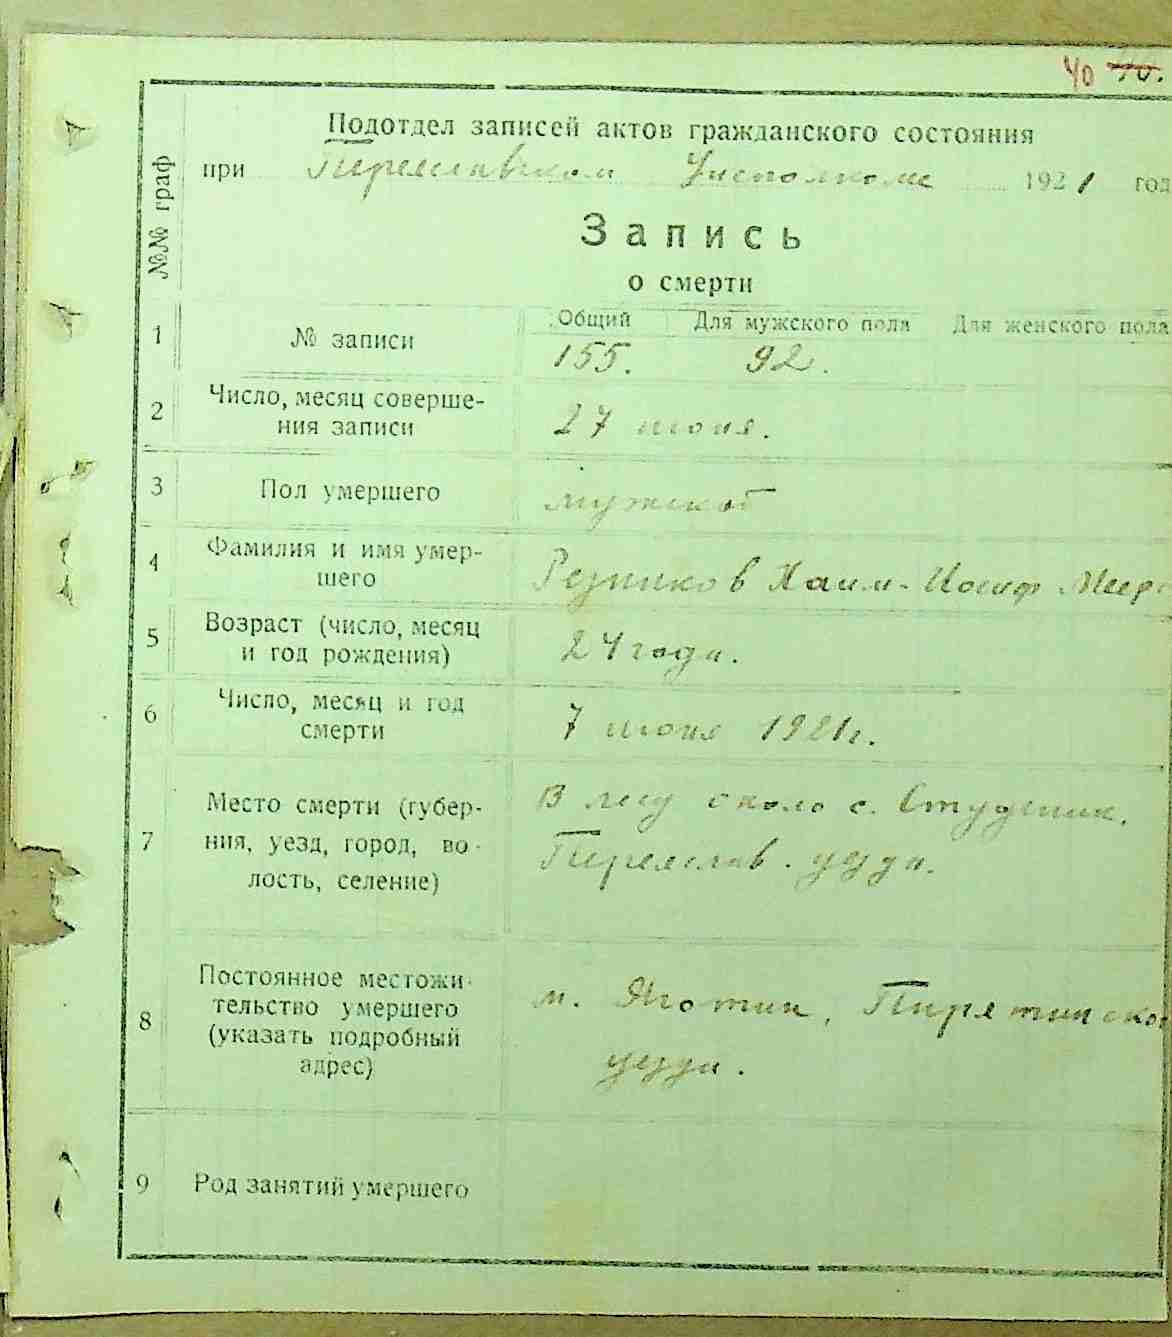 40 40.
Подотдел записей актов гражданского состояния
при Переяславском Уисполкоме 1921 год
№№ граф
Запись
о смерти
1 № записи Общий Для мужского пола Для женского пола
155. 92.
2 Число, месяц соверше-
ния записи 27 июня.
3 Пол умершего мужской
4 Фамилия и имя умер-
шего Резников Хаим-Иосиф Меер
5 Возраст (число, месяц
и год рождения) 24 года.
6 Число, месяц и год
смерти 7 июня 1921г.
7 Место смерти (губер-
ния, уезд, город, во-
лость, селение) В лесу около с. Студеник.
Переяслав. уезда.
8 Постоянное местожи-
тельство умершего
(указать подробный
адрес) м. Яготин, Пирятинско
уезда.
9 Род занятий умершего